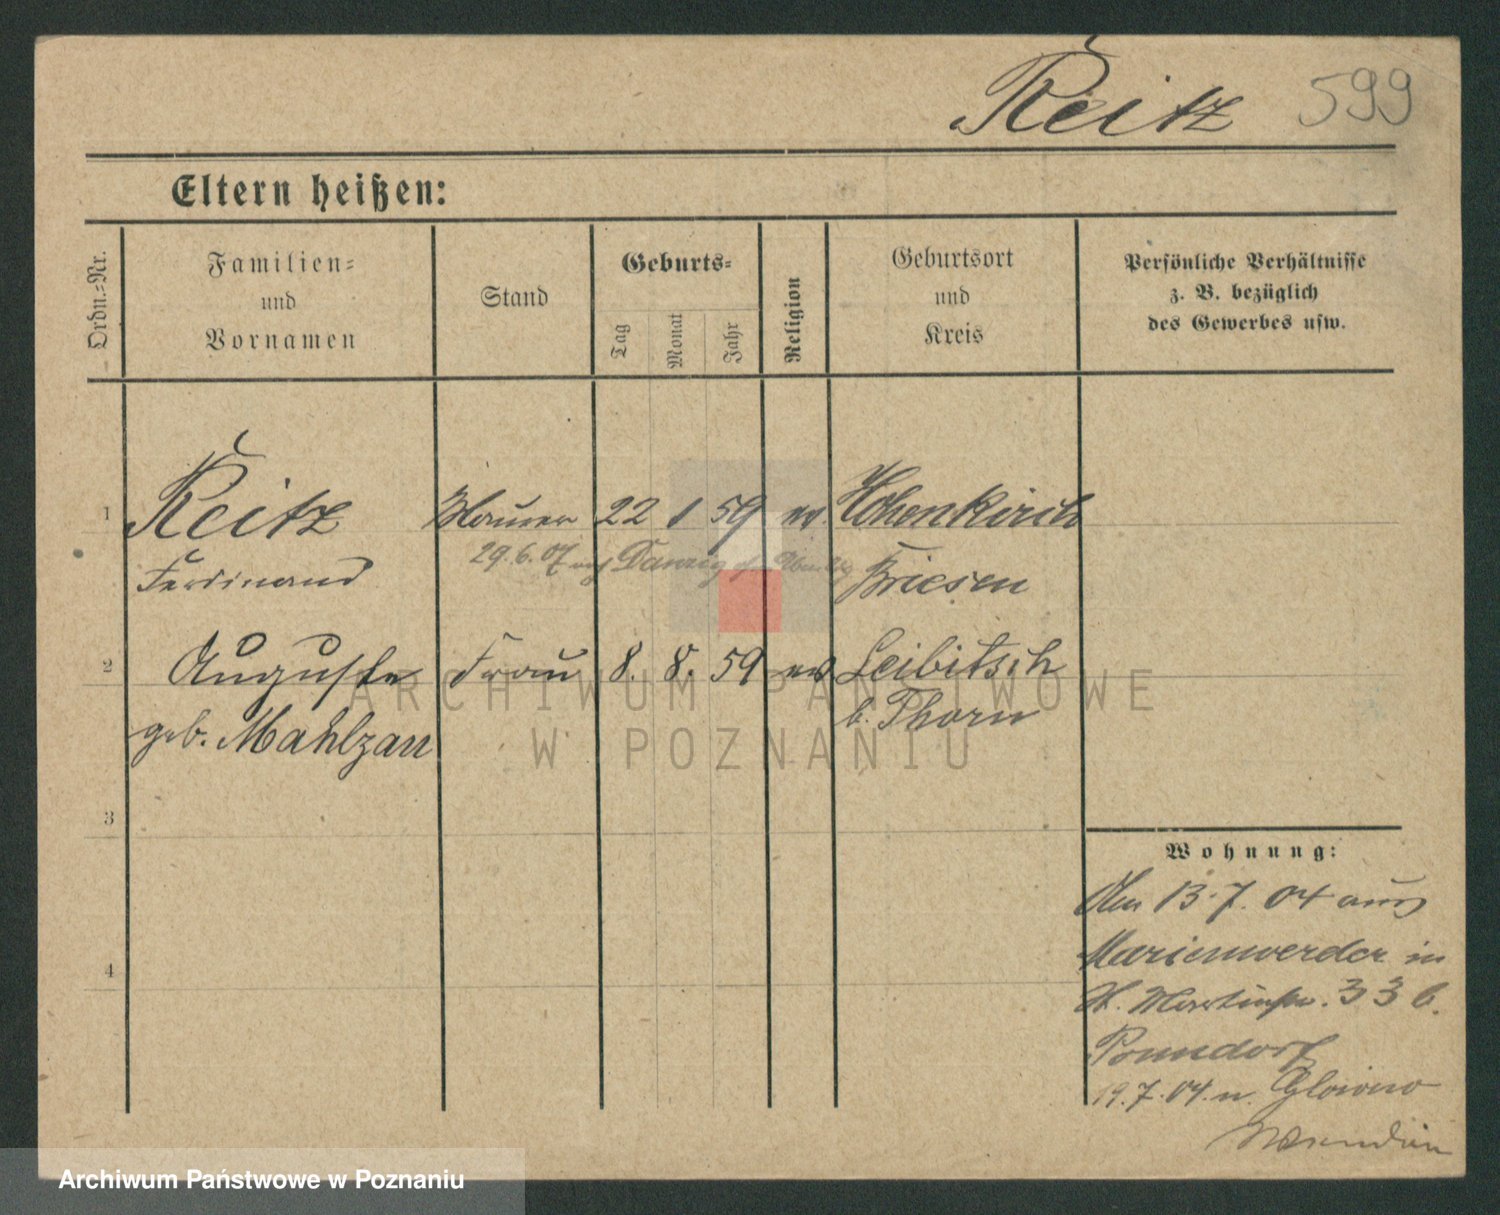 Reitz 599
Eltern heißen:
Ordn.-Nr.
Familien-
und
Vornamen
Stand
Geburts-
Tag
Monat
Jahr
Religion
Geburtsort
und
Kreis
Persönliche Verhältnisse
z. B. bezüglich
des Gewerbes usw.
1 Reitz Maurer 22 1 59 ev. Hohenkirch
29.6.07 Danzig
Ferdinand Briesen
2 Auguste Frau 8. 8. 59 ev Leibitsch
geb. Mahlzan b. Thorn
3
4
Wohnung:
Am 13.7.04 aus
Marienwerder in
St. Martinstr. 33 b.
Ponndorf
19.7.04. n. Glowno
ARCHIWUM PAŃSTWOWE
W POZNANIU
Archiwum Państwowe w Poznaniu